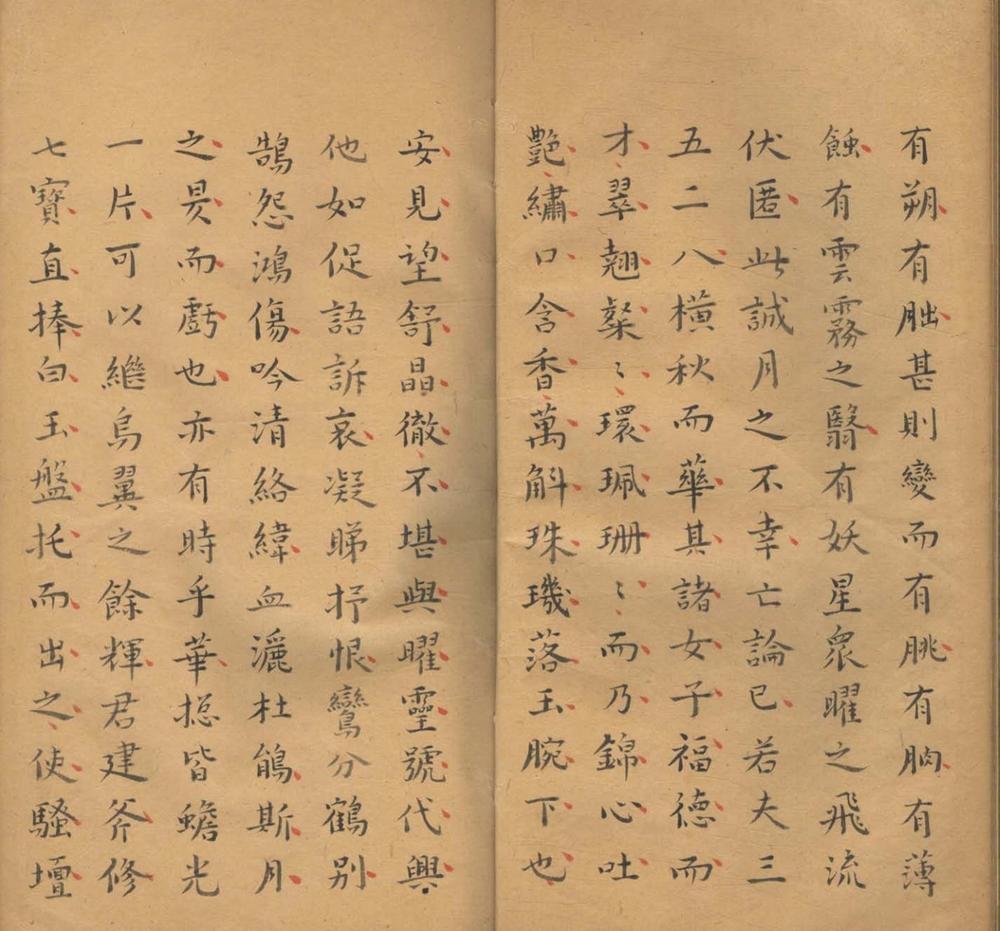 有朔有朏甚則變而有朓有朒有薄
蝕有雲霧之翳有妖星眾曜之飛流
伏匿此誠月之不幸亡論已若夫三
五二八橫秋而華其諸女子福德而
才翠翹粲〻環珮珊〻而乃錦心吐
艷繡口含香萬斛珠璣落玉腕下也
安見望舒晶徹不堪與曜靈號代興
他如促語訴哀凝睇抒恨鸞分鶴別
鵠怨鴻傷吟清絡緯血灑杜鵑斯月
之昃而虧也亦有時乎華揔皆蟾光
一片可以繼烏翼之餘輝君建斧修
七寶直捧白玉盤托而出之使騷壇